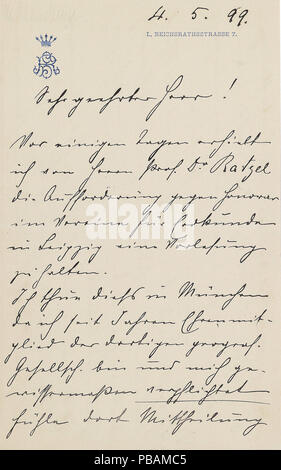 4. 5. 99.
I., REICHSRATHSSTRASSE 7.
Sehr geehrter Herr !
Vor einigen Tagen erhielt
ich von Herrn Prof. Dr Ratzel
die Aufforderung gegen Honorar
im Vereine für Erdkunde
in Leipzig eine Vorlesung
zu halten.
Ich thue dieß in München
da ich seit Jahren Ehrenmit-
glied der dortigen geograf.
Gesellsch. bin und mich ge-
wissermaßen verpflichtet
fühle dort Mittheilung
alamy
alamy stock photo
PBAMC5